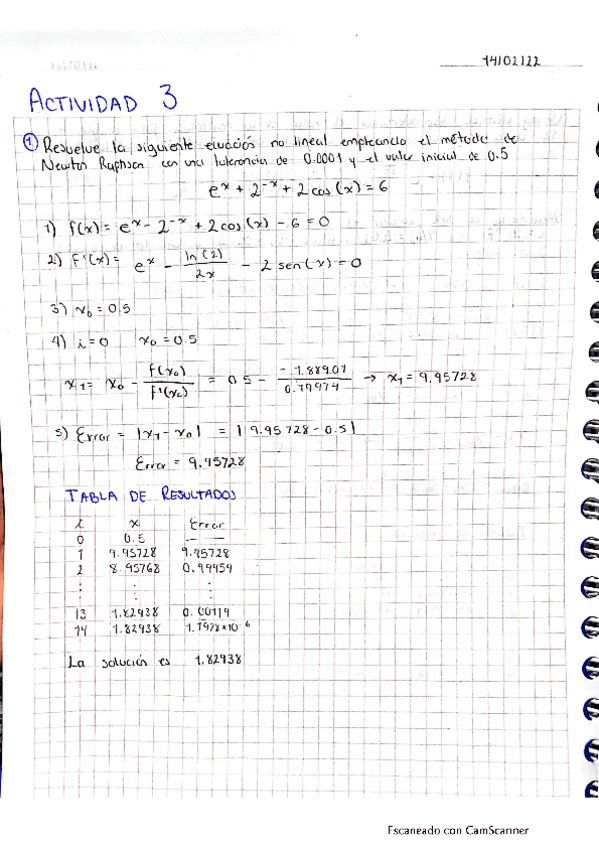 14/02/22
ACTIVIDAD 3
① Resuelve la siguiente ecuación no lineal empleando el método de
Newton Raphson con una tolerancia de 0.0001 y el valor inicial de 0.5
e^x + 2^-x + 2 cos(x) = 6
1) f(x) = e^x - 2^-x + 2 cos(x) - 6 = 0
2) F'(x) = e^x - ln(2)/2x - 2 sen(x) = 0
3) x0 = 0.5
4) i = 0 x0 = 0.5
x1 = x0 - f(x0)/f'(x0) = 0.5 - → x1 = 9.95728
5) Error = |x1 - x0| = |9.95728 - 0.5|
Error = 9.45728
TABLA DE RESULTADOS
i x Error
0 0.5 ——
1 9.95728 9.45728
2 8.95768 0.99959
⋮ ⋮ ⋮
13 1.82938 0.00119
14 1.82938
La solución es 1.82938
Escaneado con CamScanner